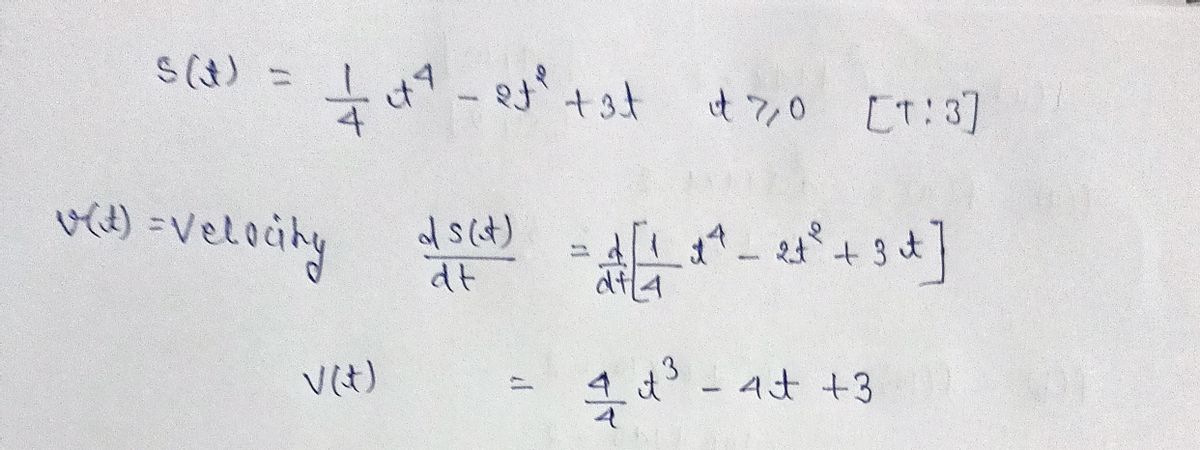 s(t) = 1/4 t^4 - 2t^2 + 3t t ≥ 0 [1:3]
v(t) = Velocity ds(t)/dt = d/dt [1/4 t^4 - 2t^2 + 3t]
v(t) = 4/4 t^3 - 4t + 3